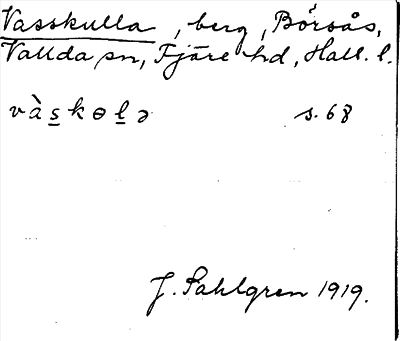 Vasskulla, berg, Börsås,
Vallda sn, Fjäre hd, Hall. l.
vàs̲kɵl̲ə s. 68
J. Sahlgren 1919.